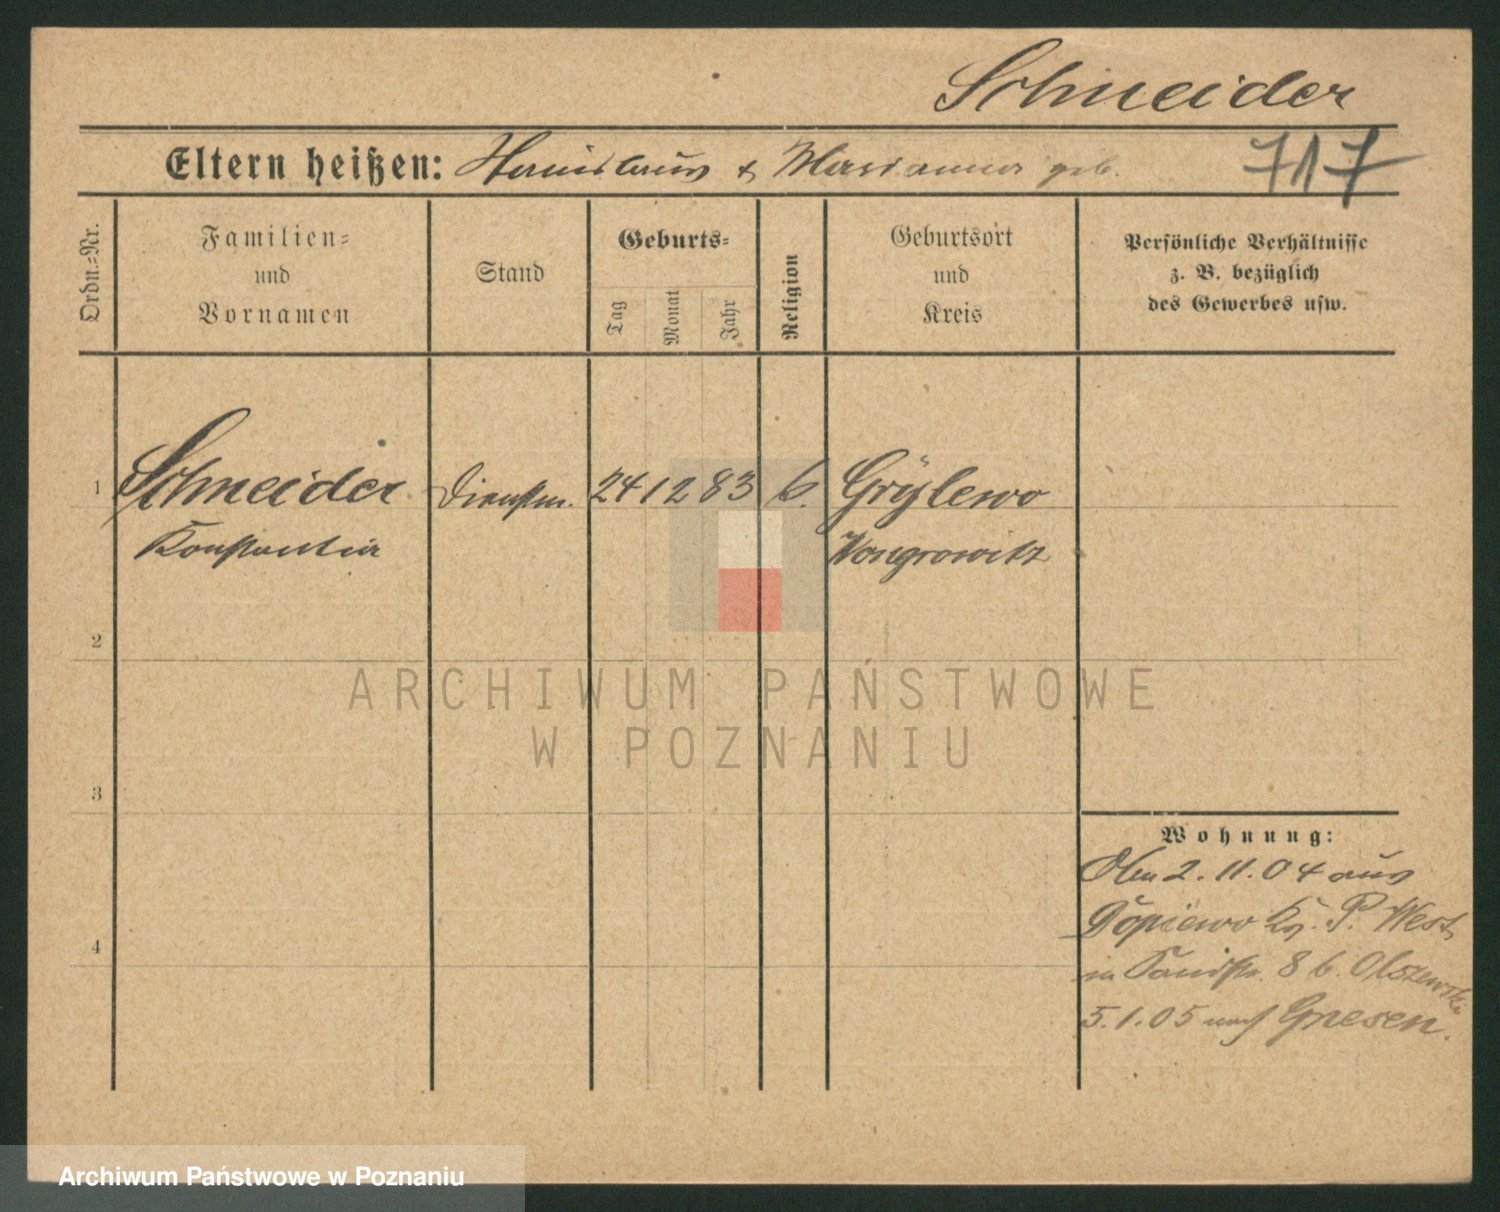 Schneider
Eltern heißen: Stanislaus & Marianna geb.
717
Ordn.-Nr.
Familien- und Vornamen
Stand
Geburts-
Tag
Monat
Jahr
Religion
Geburtsort und Kreis
Persönliche Verhältnisse
z. B. bezüglich
des Gewerbes usw.
1
Schneider
Dienstm.
24 12 83
Konstantia
Wongrowitz
2
3
4
Wohnung:
2.11.04 aus
Dopiewo Kr. P. West
in 8 b. Olszewski
5.1.05 nach Gnesen.
ARCHIWUM PAŃSTWOWE
W POZNANIU
Archiwum Państwowe w Poznaniu